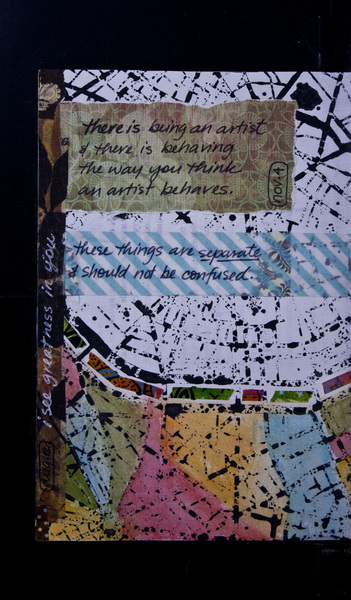 there is being an artist
& there is behaving
the way you think
an artist behaves.
nov. 4
these things are separate
& should not be confused.
i see greatness in you